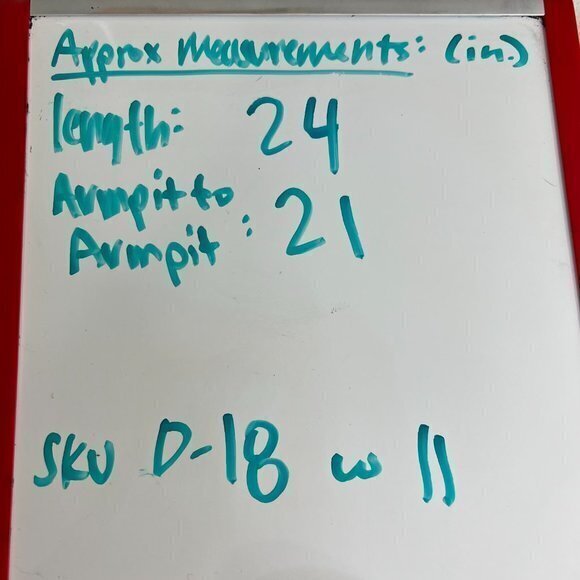 Approx Measurements: (in.)
length: 24
Armpit to
Armpit: 21
SKU D-18 w 11